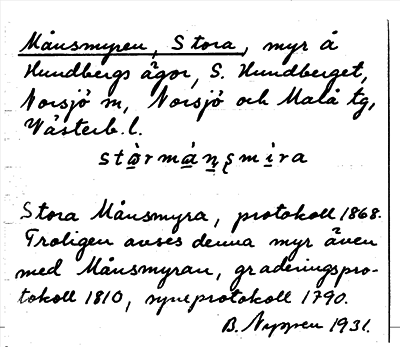 Månsmyren, Stora, myr å
Hundbergs ägor, S. Hundberget,
Norsjö sn, Norsjö och Malå tg,
Västerb. l.
stòrmánsmira
Stora Månsmyra, protokoll 1868.
Troligen avses denna myr även
med Månsmyran, graderingspro-
tokoll 1810, syneprotokoll 1790.
B. Nyssen 1931.